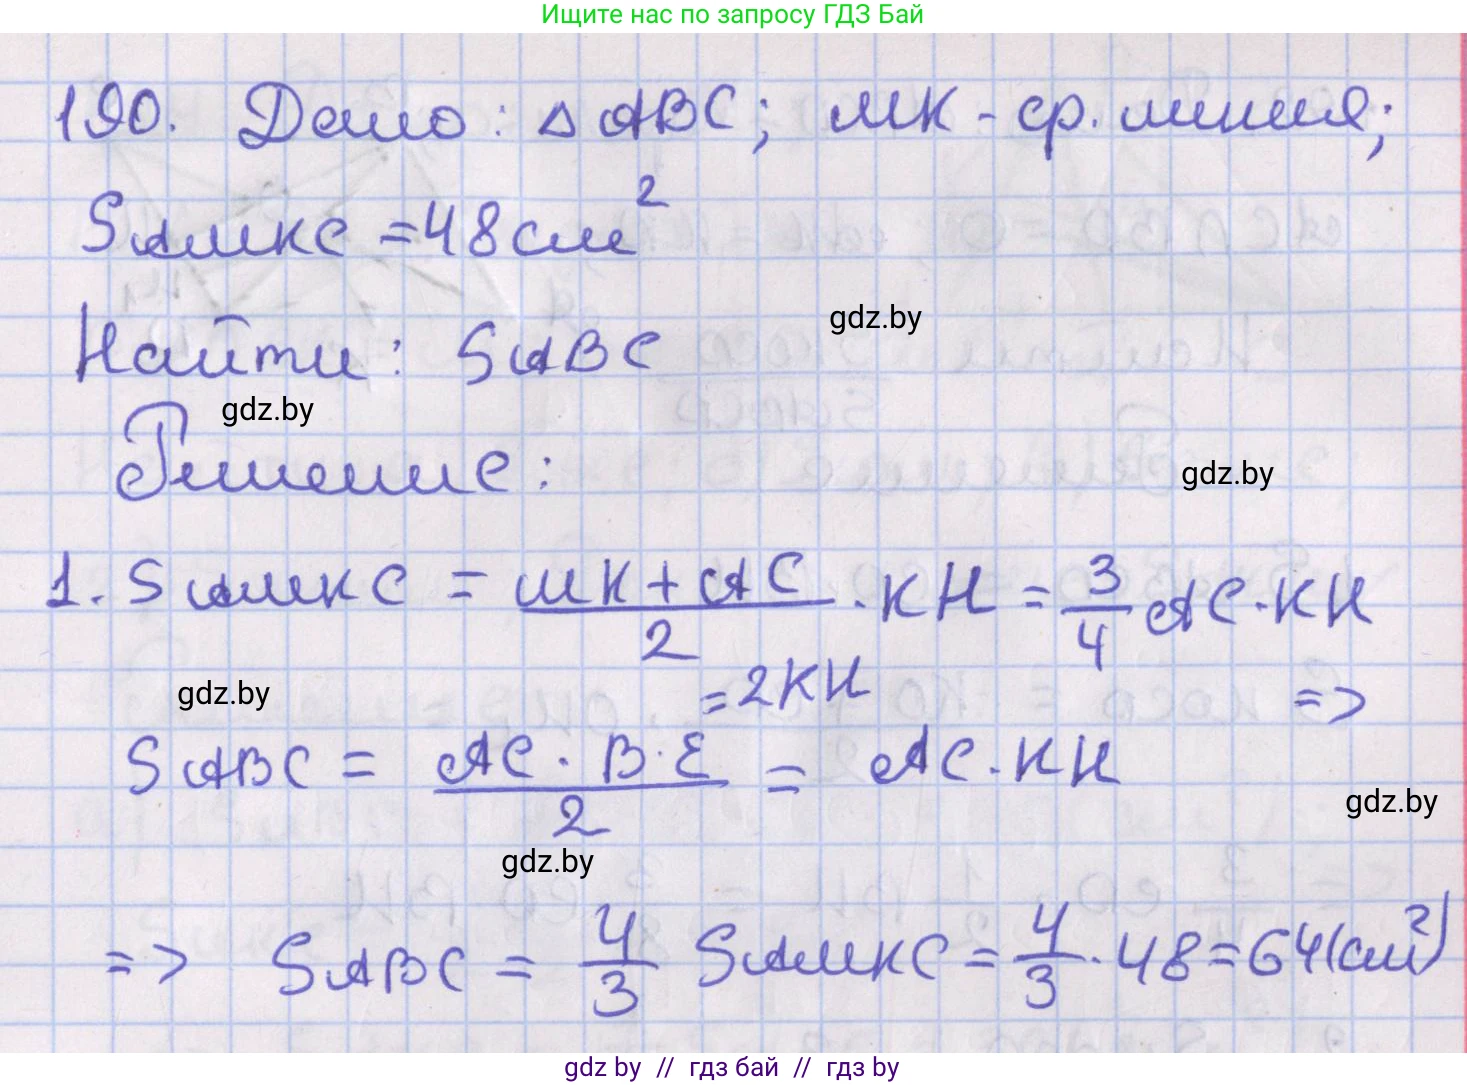 Ищите нас по запросу ГДЗ Бай
190. Дано: △ ABC; MK - ср. линия;
SAMKC = 48 см²
Найти: SABC
gdz.by
gdz.by
Решение:
gdz.by
1. SAMKC = (MK + AC)/2 · KH = 3/4 AC · KH
gdz.by
=2KH
=>
SABC = (AC · B · E)/2 = AC · KH
gdz.by
gdz.by
=> SABC = 4/3 SAMKC = 4/3 · 48 = 64 (см²)
gdz by // гдз бай // гдз by